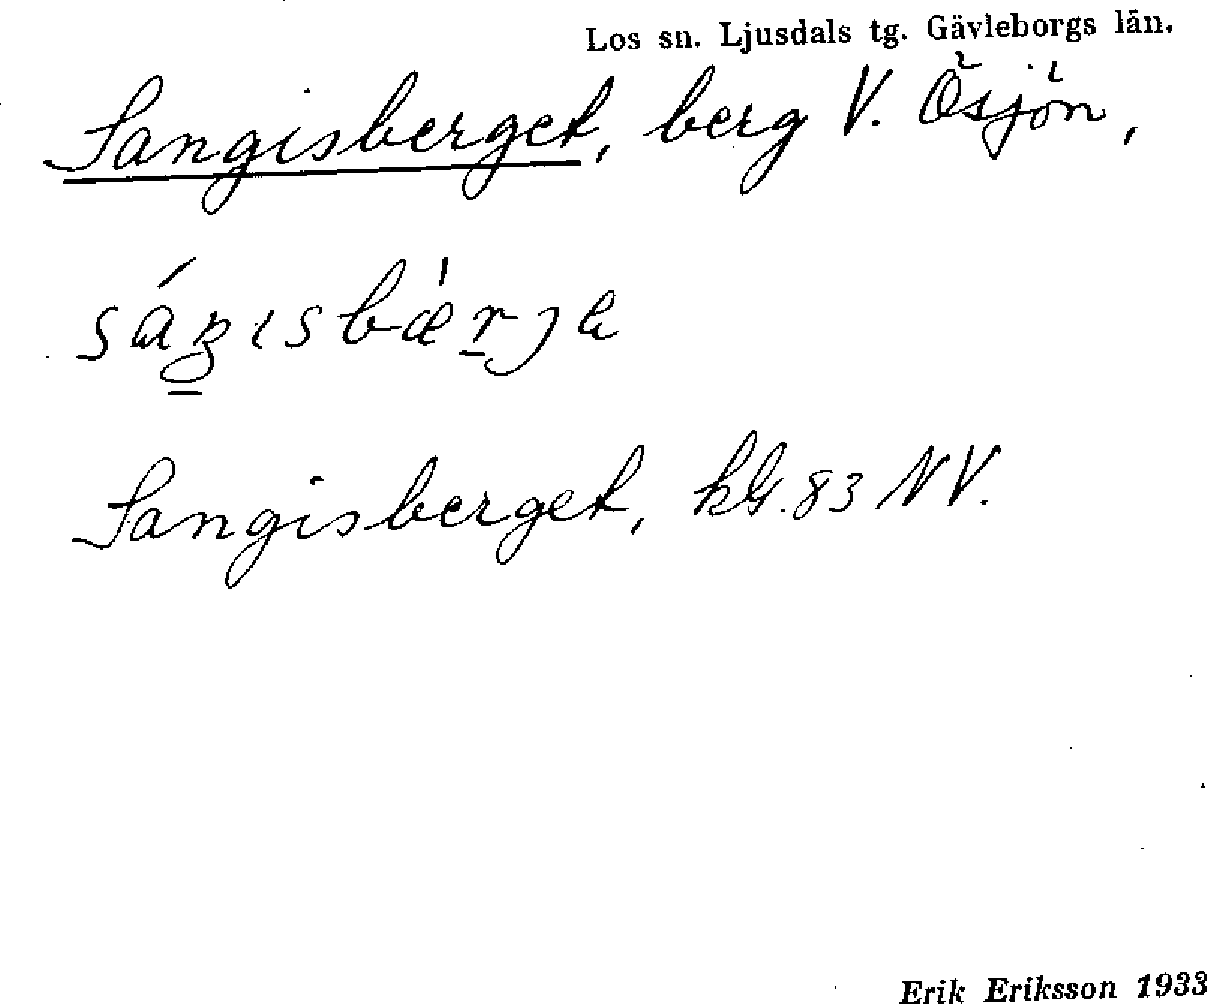 Los sn. Ljusdals tg. Gävleborgs län.
Sangisberget, berg V. Ösjön,
Sangisberget, kbl.83 NV.
Erik Eriksson 1933